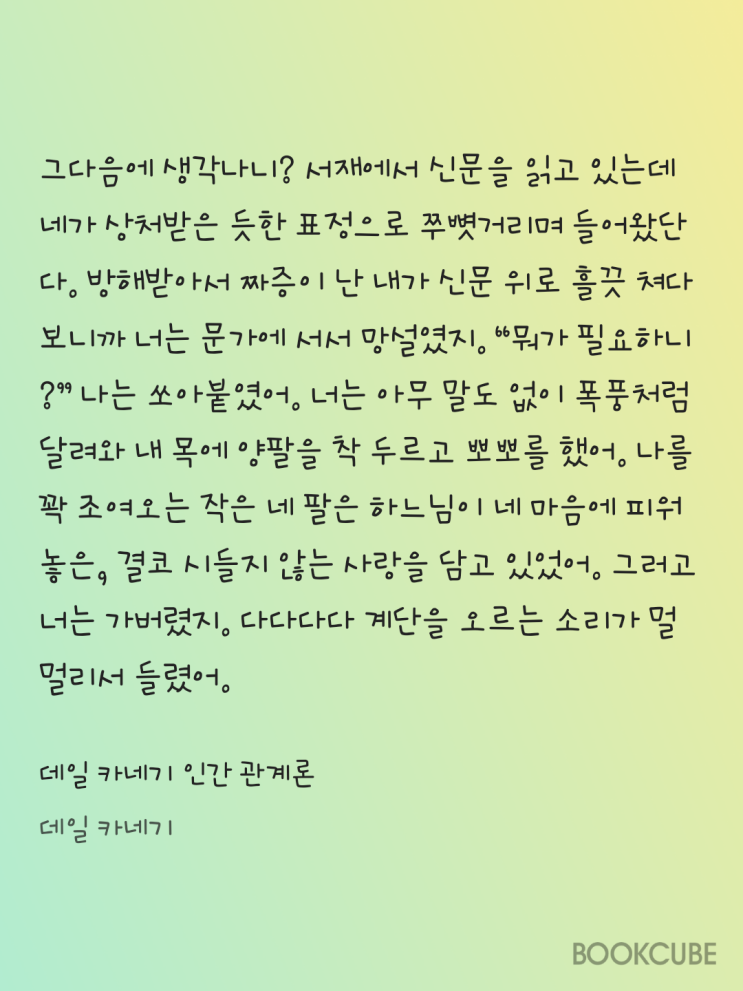 그다음에 생각나니? 서재에서 신문을 읽고 있는데
네가 상처받은 듯한 표정으로 쭈뼛거리며 들어왔단
다. 방해받아서 짜증이 난 내가 신문 위로 흘끗 쳐다
보니까 너는 문가에 서서 망설였지. “뭐가 필요하니
?” 나는 쏘아붙였어. 너는 아무 말도 없이 폭풍처럼
달려와 내 목에 양팔을 착 두르고 뽀뽀를 했어. 나를
꽉 조여오는 작은 네 팔은 하느님이 네 마음에 피워
놓은, 결코 시들지 않는 사랑을 담고 있었어. 그러고
너는 가버렸지. 다다다다 계단을 오르는 소리가 멀
멀리서 들렸어.
데일 카네기 인간 관계론
데일 카네기
BOOKCUBE